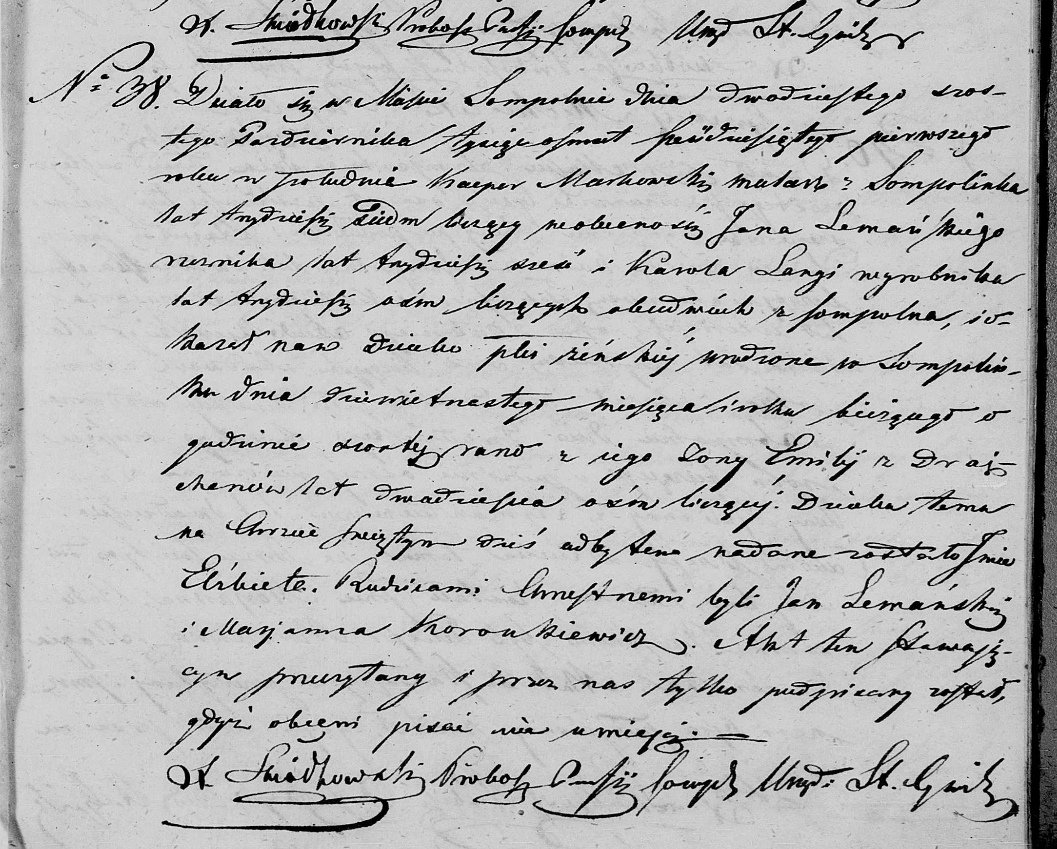 X. Śniodkowski Probosz Parafii Sompol. Urzęd. St. Cywil.
No 38. Działo się w Mieście Sompolnie dnia dwudziestego szos-
tego Pazdziernika tysiąc osmset pięćdziesiątego pierwszego
roku w południe Kacper Markowski mularz z Sompolinka
lat trzydzieści siedm liczący w obecności Jana Lemańskiego
rzeznika lat trzydzieści sześć i Karola Langi wyrobnika
lat trzydzieści ośm liczących obudwóch z Sompolna, i o-
kazał nam Dziecko płci żeńskiéj urodzone w Sompoliń-
ku dnia dziewiętnastego miesiąca i roku bieżącego o
godzinie szostéj rano z iego Zony Emilij z Draj-
chenów lat dwadzieścia ośm liczącéj. Dziecku temu
na Chrzcie Swiętym dziś odbytem nadane zostało Imie
Elżbieta. Rodzicami Chrzestnemi byli Jan Lemański
i Maryanna Koronkiewicz. Akt ten stawają-
cym przeczytany i przez nas tylko podpisany został,
gdyż obecni pisać nie umieją.
X. Śniodkowski Probosz Parafii Sompol. Urzęd. St. Cywil.